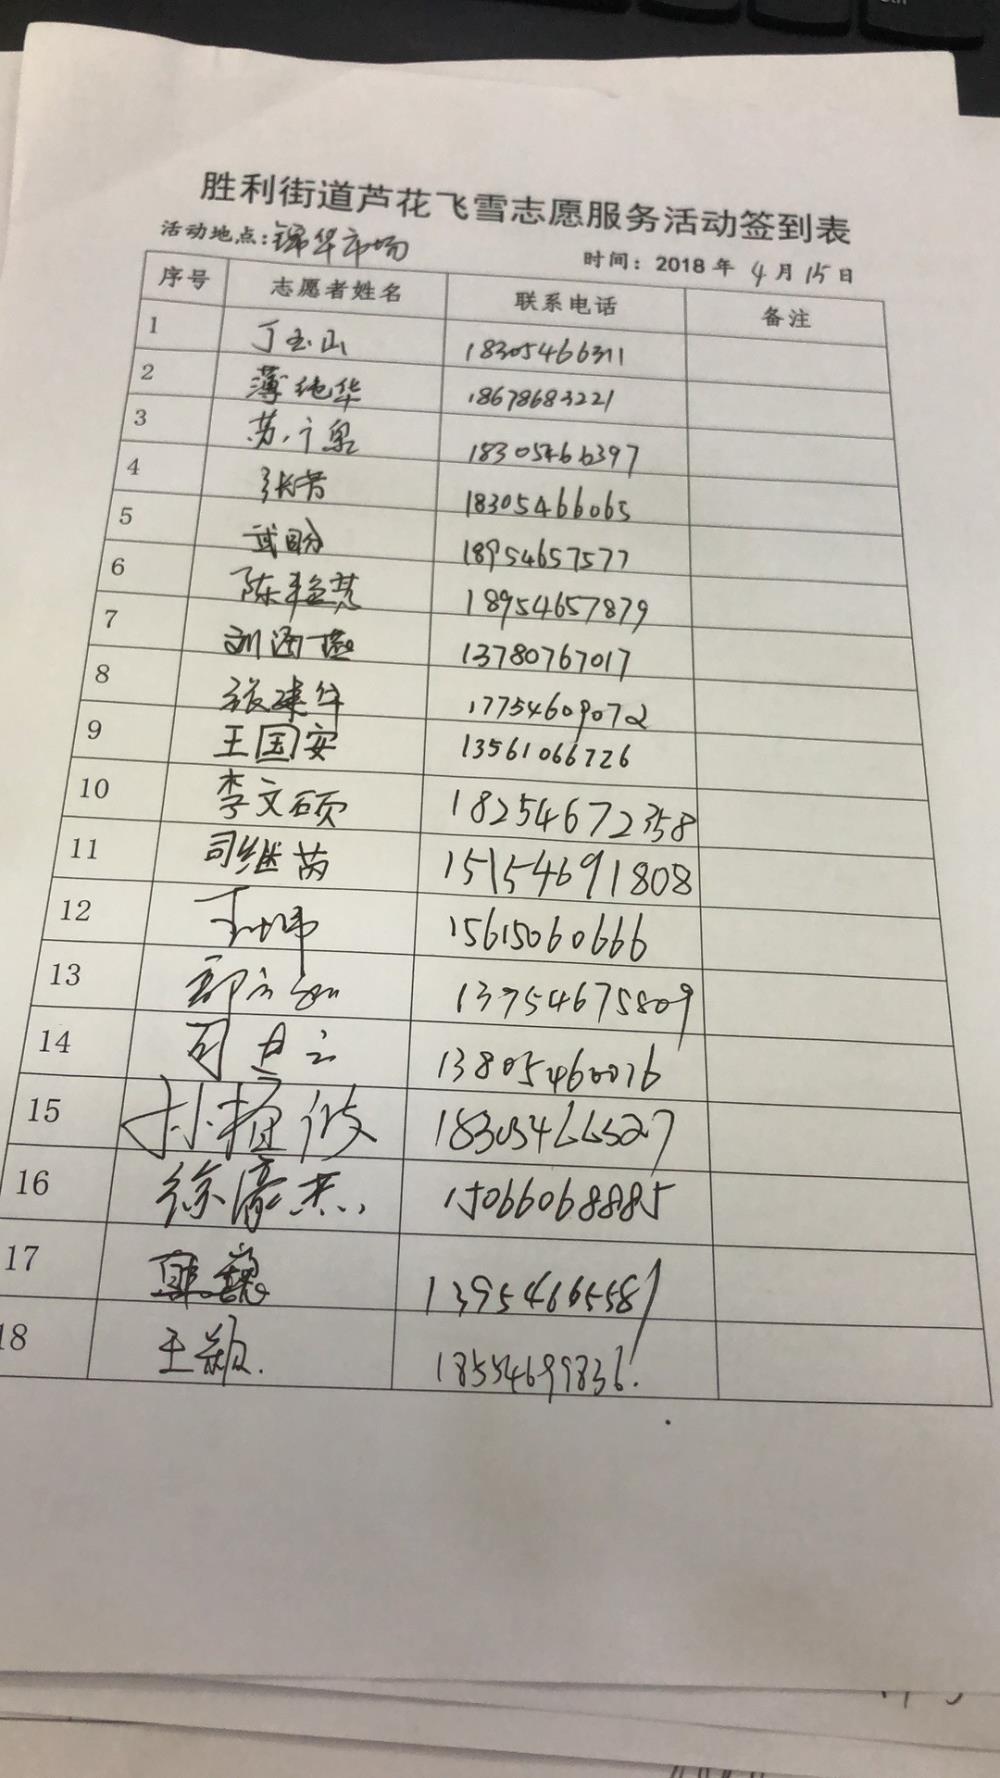 胜利街道芦花飞雪志愿服务活动签到表
活动地点:锦华市场 时间: 2018 年 4 月 15 日
序号 志愿者姓名 联系电话 备注
1 丁玉山 18305466311
2 薄纯华 18678683221
3 苏广泉 18305466397
4 张芳 18305466065
5 武盼 18954657577
6 陈艳慧 18954657879
7 刘海燕 13780767017
8 张建华 17754609072
9 王国安 13561066726
10 李文硕 18254672358
11 司继芮 15154691808
12 王伟 15615060666
13 13754675809
14 13805460076
15 18305466527
16 徐濠杰 15066068885
17 13954665581
18 王颖. 18554699836.